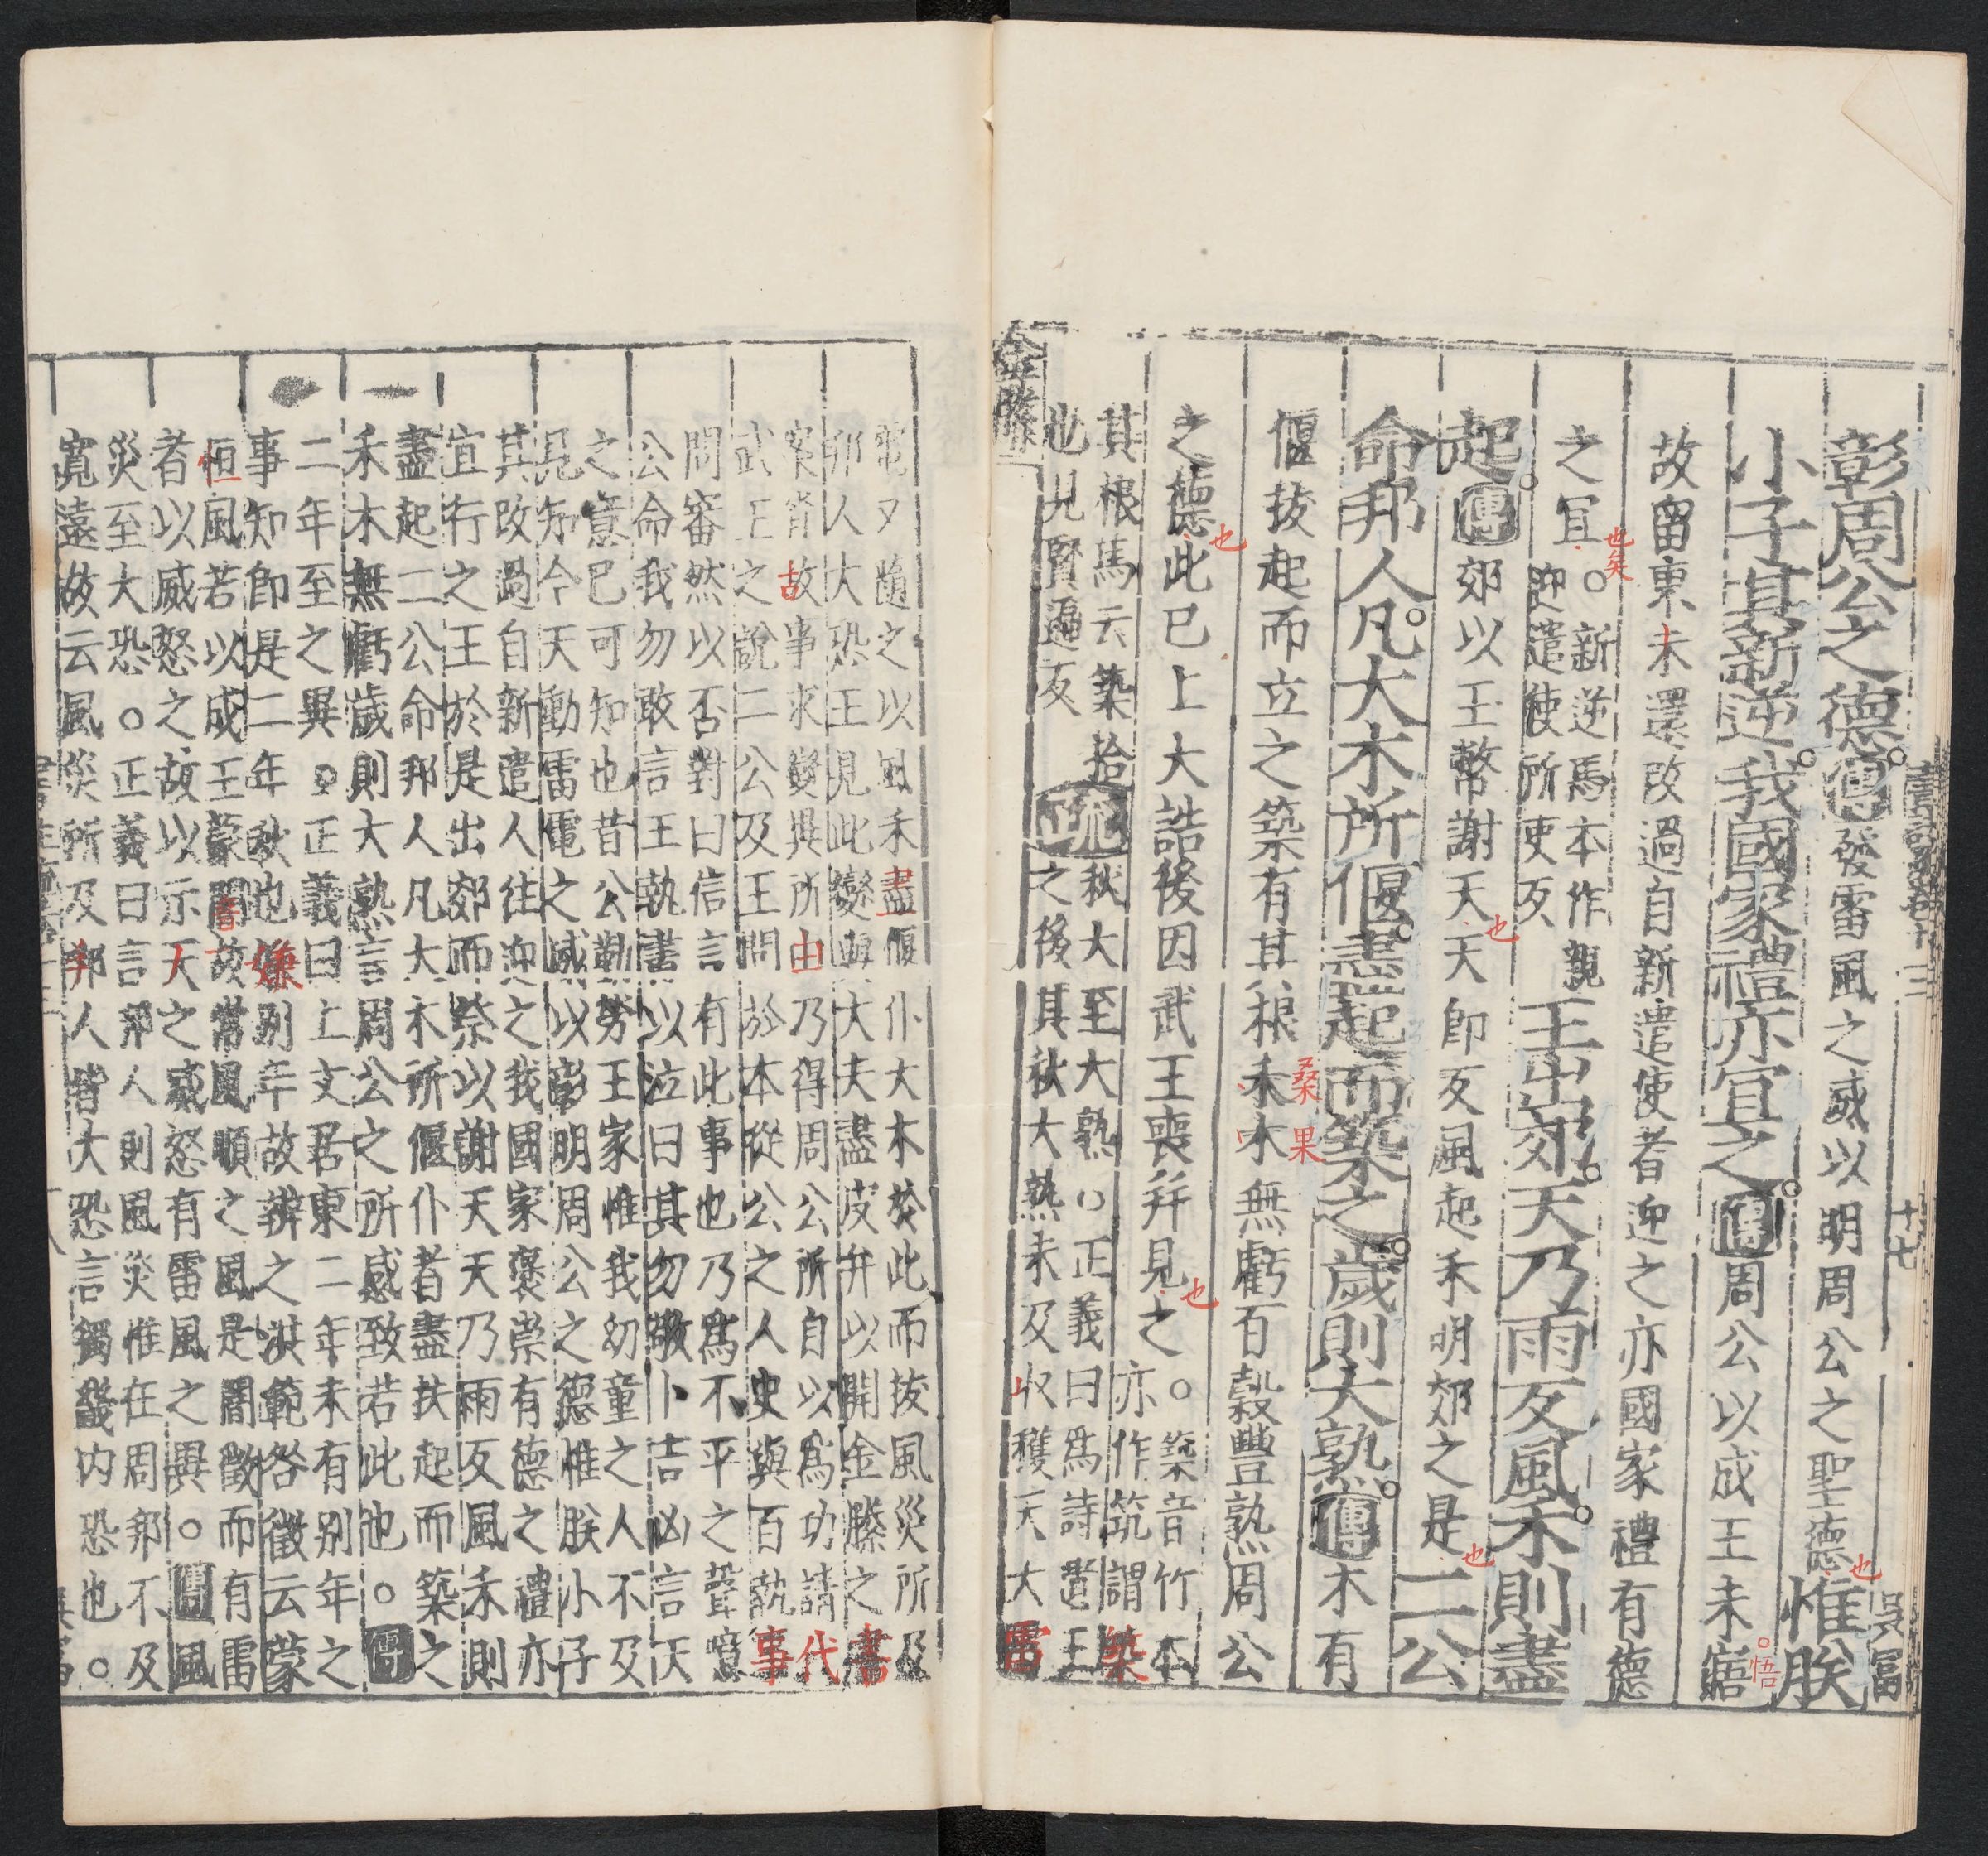 彰周公之德傳發雷風之威以明周公之聖德也惟朕
小子其新逆我國家禮亦宜之傳周公以成王未寤悟
故留東未還改過自新遣使者迎之亦國家禮有德
之宜也矣。新逆馬本作親
迎遣使所吏反
王出郊天乃雨反風禾則盡
起傳郊以玉幣謝天也天即反風起禾明郊之是也二公
命邦人凡大木所偃盡起而築之歲則大熟傳木有
偃拔起而立之築有其根桑果禾木無虧百穀豐熟周公
之德也此已上大誥後因武王喪并見也之。築音竹本
亦作筑謂築
其根馬云築拾
也見賢遍反
疏秋大至大熟。正義曰爲詩遺王
之後其秋大熟未及收穫天大雷
金縢
十七
吳冨
電又隨之以風禾盡偃仆大木於此而拔風災所及
邦人大恐王見此變與大夫盡皮弁以開金縢之書
案省古故事求變異所由乃得周公所自以爲功請代
武王之說二公及王問於本從公之人史與百執事
問審然以否對曰信言有此事也乃爲不平之聲噫
公命我勿敢言王執書以泣曰其勿敬卜吉凶言天
之意已可知也昔公勤勞王家惟我幼童之人不及
見知今天動雷電之威以彰明周公之德惟朕小子
其改過自新遣人往迎之我國家褒崇有德之禮亦
宜行之王於是出郊而祭以謝天天乃雨反風禾則
盡起二公命邦人凡大木所偃仆者盡扶起而築之
禾木無虧歲則大熟言周公之所感致若此也。傳
二年至之異。正義曰上文居東二年未有別年之
事知即是二年秋也嫌別年故辨之洪範咎徵云蒙
恒風若以成王蒙闇故常風順之風是闇徵而有雷
者以威怒之故以示天之威怒有雷風之異。傳風
災至大恐。正義曰言邦人則風災惟在周邦不及
寬遠故云風災所及邦人皆大恐言獨畿内恐也。